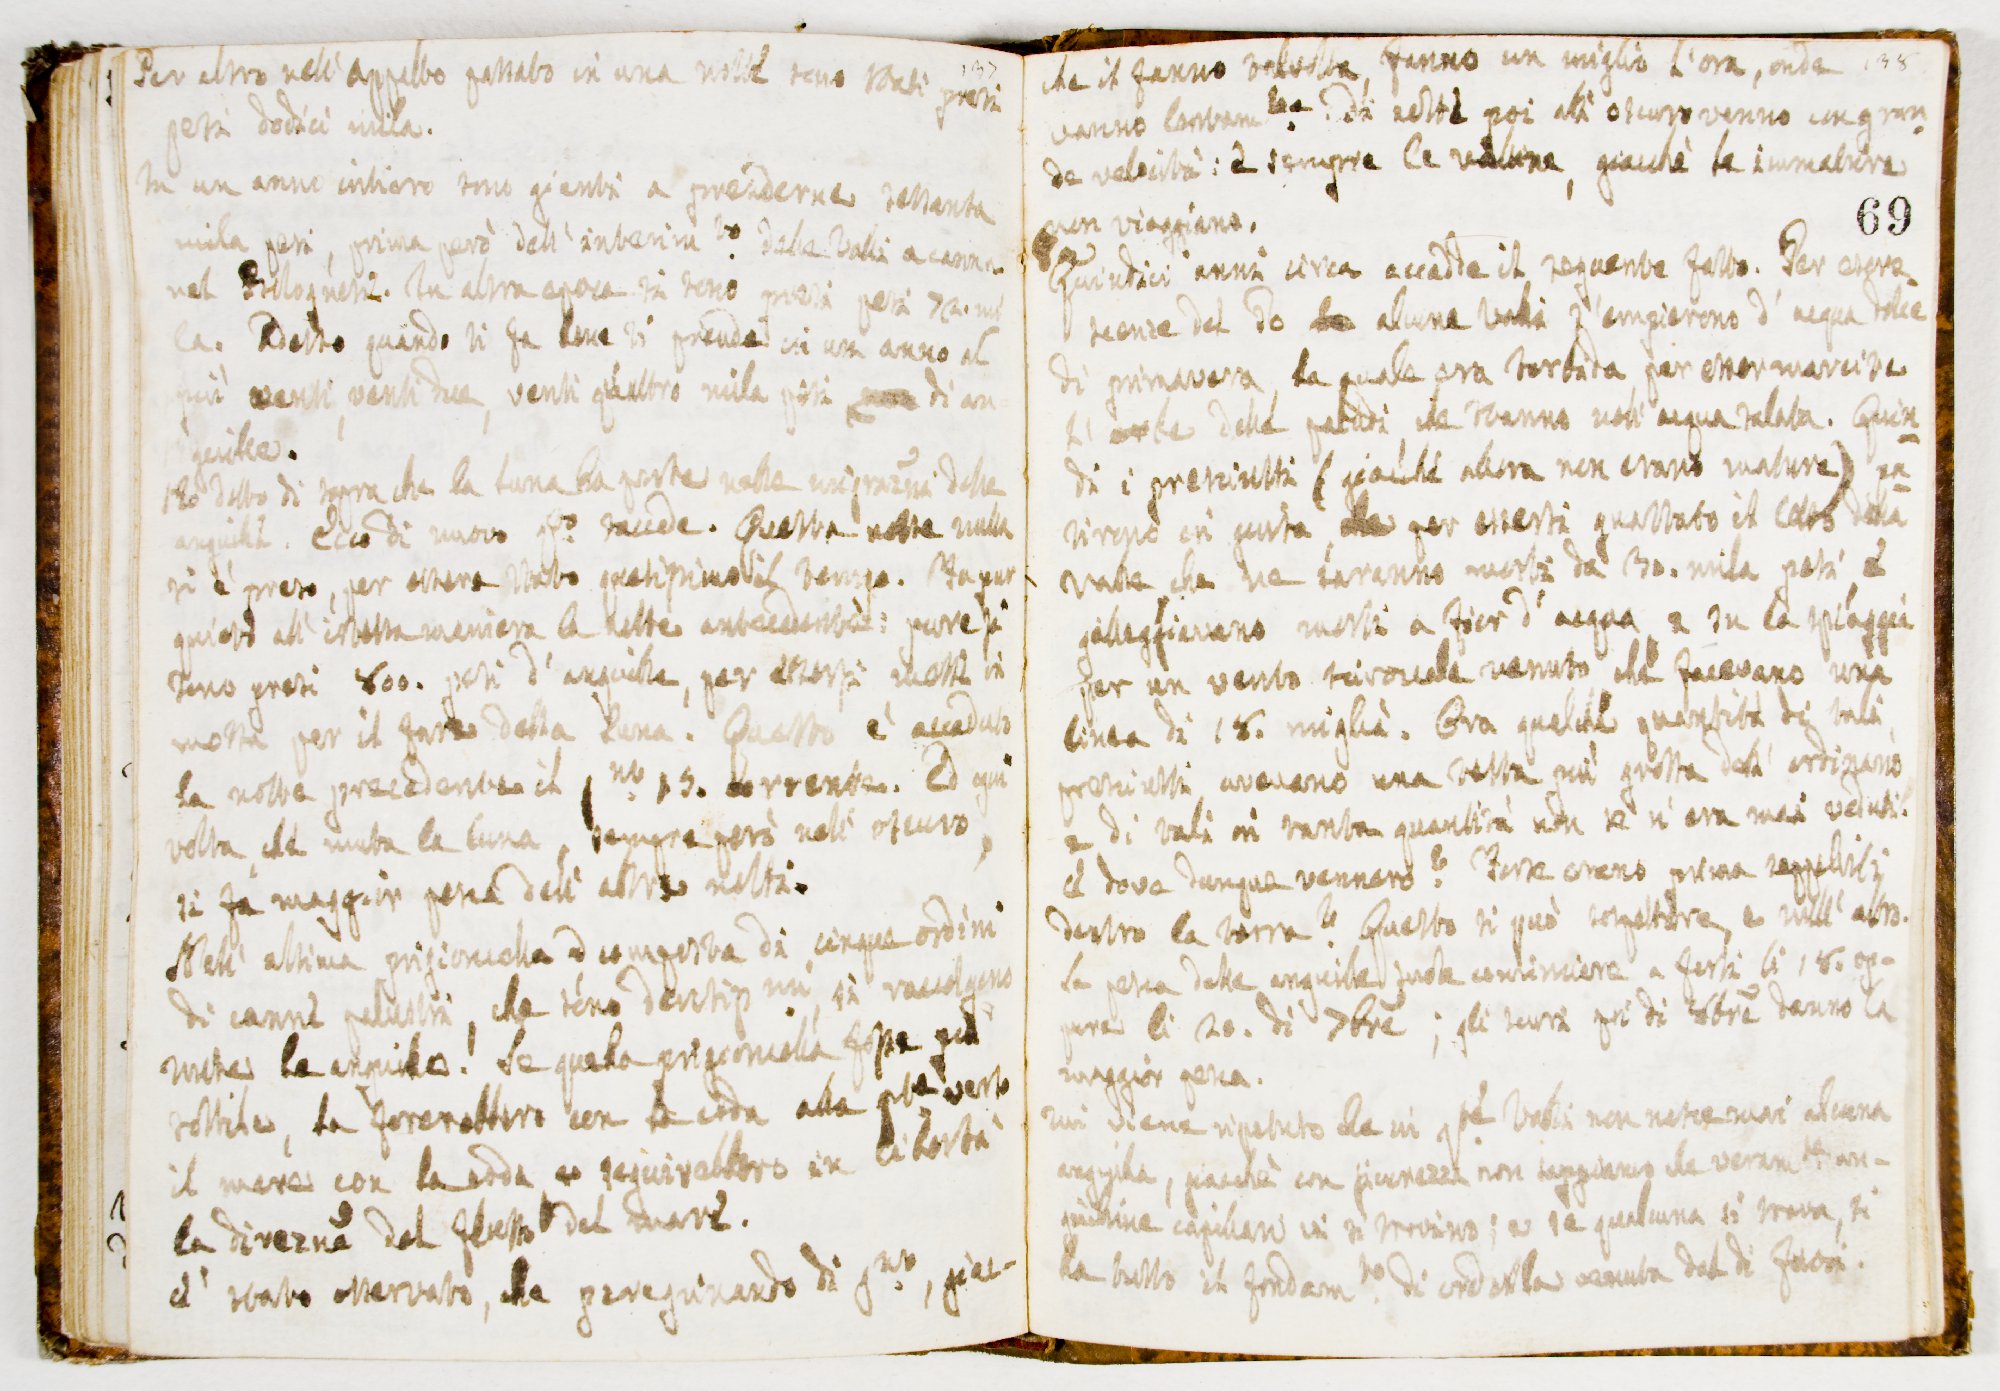 137
Per altro nell'appalto passato in una notte sono stati presi
pesi dodici mila.
In un anno intiero sono gienti a prenderne sessanta
mila pesi, prima però dell'interim.to delle Valli a canna
nel Bolognese. In altra epoca si sono presi pesi 72. mi
la. Adesso quando si fa bene si prende in un anno al
più venti, venti due, venti quattro mila pesi di an
guille.
Ho detto di sopra che la luna ha parte nelle migrazni delle
anguille. Ecco di nuovo q.to succede. Questa notte nulla
si è preso, per essere stato quetissimo il tempo. Fu pur
quieto all'istessa maniera la notte antecedente: pure si
sono presi 800. pesi d'anguille, per essersi messe in
mossa per il fare della Luna. Questo è accaduto
la notte precedente il 15. corrente. Ed ogni
volta, che muta la luna, sempre però nell'oscuro,
si fa maggior pesca dell'altre notti.
Nell'ultima prigioncella composta di cinque ordini
di canne palustri, che sono densissmi, si raccolgono
unite le anguille. Se quella prigioncella fosse più
sottile, la forerebbero con la coda alla pte verso
il mare con la coda e seguirebbero in libertà
la direzne del flusso del mare.
È stato osservato, che peregrinando di g.no, giac-
138
che il fanno talvolta, fanno un miglio l'ora, onde
vanno lentam.te. Di notte poi allo scuro vanno con gran
de velocità: è sempre le mature, giacchè le immature
non viaggiano.
69
Quindici anni circa accadde il seguente fatto. Per escre
scenze del Po alcune Valli s'empierono d'acqua dolce
di primavera, la quale era torbida per esser marcite
l'erbe delle paludi che stanno nell'acqua salata. Quin
di i presciutti (giacchè allora non erano mature) pa
tirono in guisa, per essersi guastato il letto della
Valle che ne saranno morti da 30. mila pesi, e
galleggiavano morti a fior d'acqua, e su la spiaggia
per un vento scirocale venuto che facevano una
linea di 18. miglia. Ora quella quantità di tali
presciutti avevano una testa più grossa dell'ordinario
e di tali in tanta quantità non se n'era mai veduti.
E dove dunque vennero? Forse erano prima seppelliti
dentro la terra? Questo si può sospettare, e null'altro.
La pesca delle anguille suole cominciare a farsi li 18. op-
pure li 20. di 7bre; gli scuri poi di 8bre danno la
maggior pesca.
Mi viene ripetuto che in q.te Valli non nasce mai alcuna
anguilla, giacchè con sicurezza non sappiamo che veram.te an-
guilline capillari vi si trovino; e se qualcuna si trova, si
ha tutto il fondam.to di crederla venuta dal di fuori.